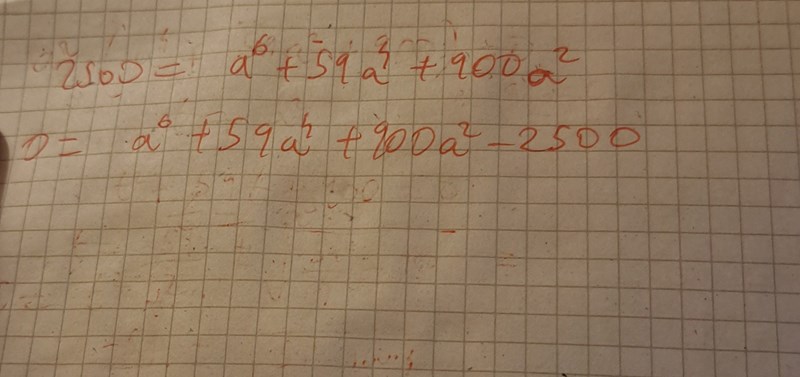 2500 = a⁶ + 59a⁴ + 900a²
0 = a⁶ + 59a⁴ + 900a² - 2500